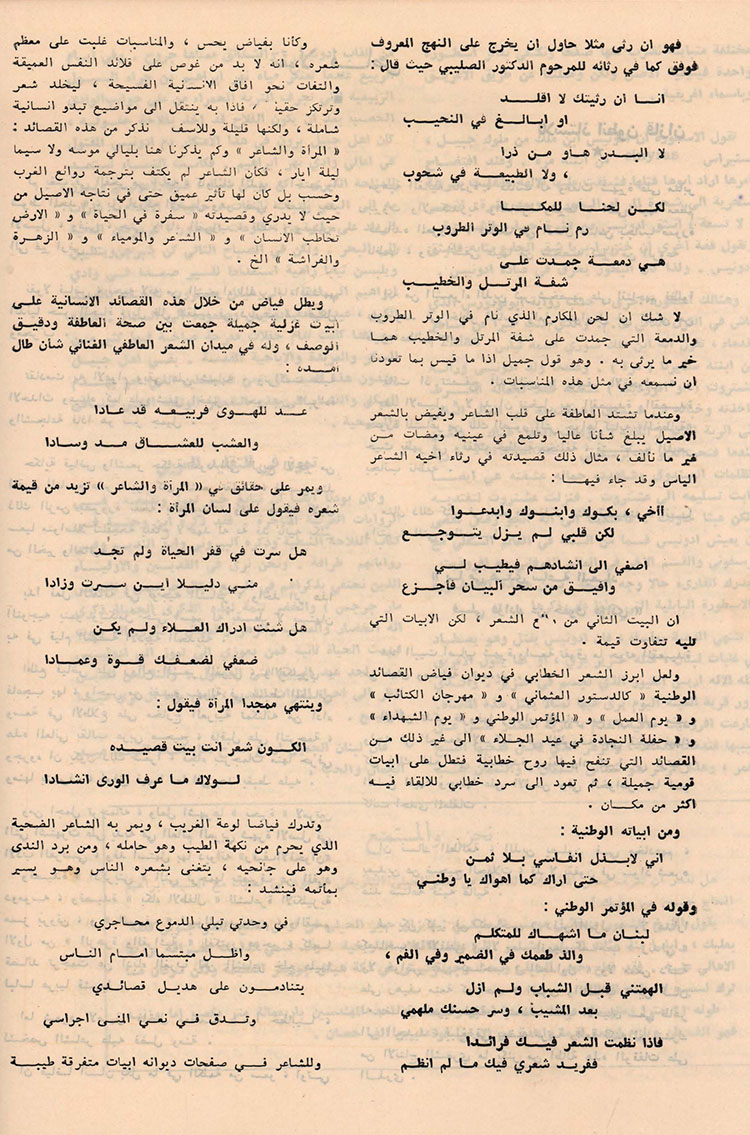 فهو ان رثى مثلا حاول ان يخرج على النهج المعروف
فوفق كما في رثائه للمرحوم الدكتور الصليبي حيث قال :
انـا ان رثيتك لا اقلـد
او ابـالـغ في النحيـب
لا البـدر هـاو مـن ذرا
، ولا الطبيعـة في شحوب
لكـن لحنـا للمكـا
رم نـام في الوتر الطروب
هـي دمعـة جمدت علـى
شفـة المرتـل والخطيـب
لا شك ان لحن المكارم الذي نام في الوتر الطروب
والدمعة التي جمدت على شفة المرتل والخطيب همـا
خير ما يرثى به . وهو قول جميل اذا ما قيس بما تعودنا
ان نسمعه في مثل هذه المناسبات .
وعندما تشتد العاطفة على قلب الشاعر ويفيض بالشعر
الاصيل يبلغ شأنا عاليا وتلمع في عينيه ومضات مـن
غير ما نألف ، مثال ذلك قصيدته في رثاء اخيه الشاعر
الياس وقد جاء فيهـا :
أأخي ، بكوك وابنـوك وابدعـوا
لكن قلبي لـم يـزل يتـوجـع
اصغي الى انشادهم فيطيب لـي
وافيـق من سحر البيان فاجـزع
ان البيت الثاني من الشعر ، لكن الابيات التي
تليه تتفاوت قيمة .
ولعل ابرز الشعر الخطابي في ديوان فياض القصائد
الوطنية « كالدستور العثماني » و « مهرجان الكتائب »
و « يوم العمل » و « المؤتمر الوطني » و « يوم الشهداء »
و « حفلة النجادة في عيد الجلاء » الى غير ذلك مـن
القصائد التي تنفح فيها روح خطابية فتطل على ابيات
قومية جميلة ، ثم تعود الى سرد خطابي للالقاء فيـه
اكثر من مكـان .
ومن ابياته الوطنية :
اني لابـذل انفـاسي بـلا ثمـن
حتى اراك كما اهواك يا وطنـي
وقوله في المؤتمر الوطني :
لبنـان مـا اشهـاك للمتكلـم
والذ طعمك في الضمير وفي الفم ،
الهمتني قبـل الشبـاب ولـم ازل
بعد المشيب ، وسر حسنك ملهمي
فاذا نظمت الشعر فيـك فرائـدا
ففريد شعري فيك ما لم انظـم
وكأنا بفياض يحس ، والمناسبات غلبت على معظم
شعره ، انه لا بد من غوص على قلائد النفس العميقة
والتفات نحو افاق الانسانية الفسيحة ، ليخلد شعر
وترتكز فاذا به ينتقل الى مواضيع تبدو انسانية
شاملة ، ولكنها قليلة وللاسف نذكر من هذه القصائد :
« المرأة والشاعر » وكم يذكرنا هنا بليالي موسه ولا سيما
ليلة ايار ، فكأن الشاعر لم يكتف بترجمة روائع الغرب
وحسب بل كان لها تأثير عميق حتى في نتاجه الاصيل من
حيث لا يدري وقصيدته « سفرة في الحياة » و « الارض
تخاطب الانسان » و « الشاعر والمومياء » و « الزهـرة
والفراشة » الخ .
ويطل فياض من خلال هذه القصائد الانسانية علـى
ابيات غزلية جميلة جمعت بين صحة العاطفة ودقيـق
الوصف ، وله في ميدان الشعر العاطفي الغنائي شأن طال
امـده :
عـد للهـوى فربيعـه قد عـادا
والعشب للعشـاق مـد وسـادا
ويمر على حقائق في « المرأة والشاعر » تزيد من قيمة
شعره فيقول على لسان المرأة :
هل سرت في قفر الحياة ولم تجـد
منـي دليـلا ايـن سـرت وزادا
هل شئت ادراك العـلاء ولـم يكـن
ضعفي لضعفـك قـوة وعمـادا
وينتهي ممجدا المرأة فيقول :
الكـون شعر انت بيت قصيـده
لـولاك مـا عرف الورى انشـادا
وتدرك فياضا لوعة الغريب ، ويمر به الشاعر الضحية
الذي يحرم من نكهة الطيب وهو حامله ، ومن برد الندى
وهو على جانحيه ، يتغنى بشعره الناس وهـو يسير
بمأتمه فينشد :
في وحدتي تبلي الدموع محاجري
واظـل مبتسما امـام النـاس
يتنادمـون على هديـل قصائـدي
وتـدق فـي نعي المنـى اجراسي
وللشاعر فـي صفحات ديوانه ابيات متفرقة طيبـة